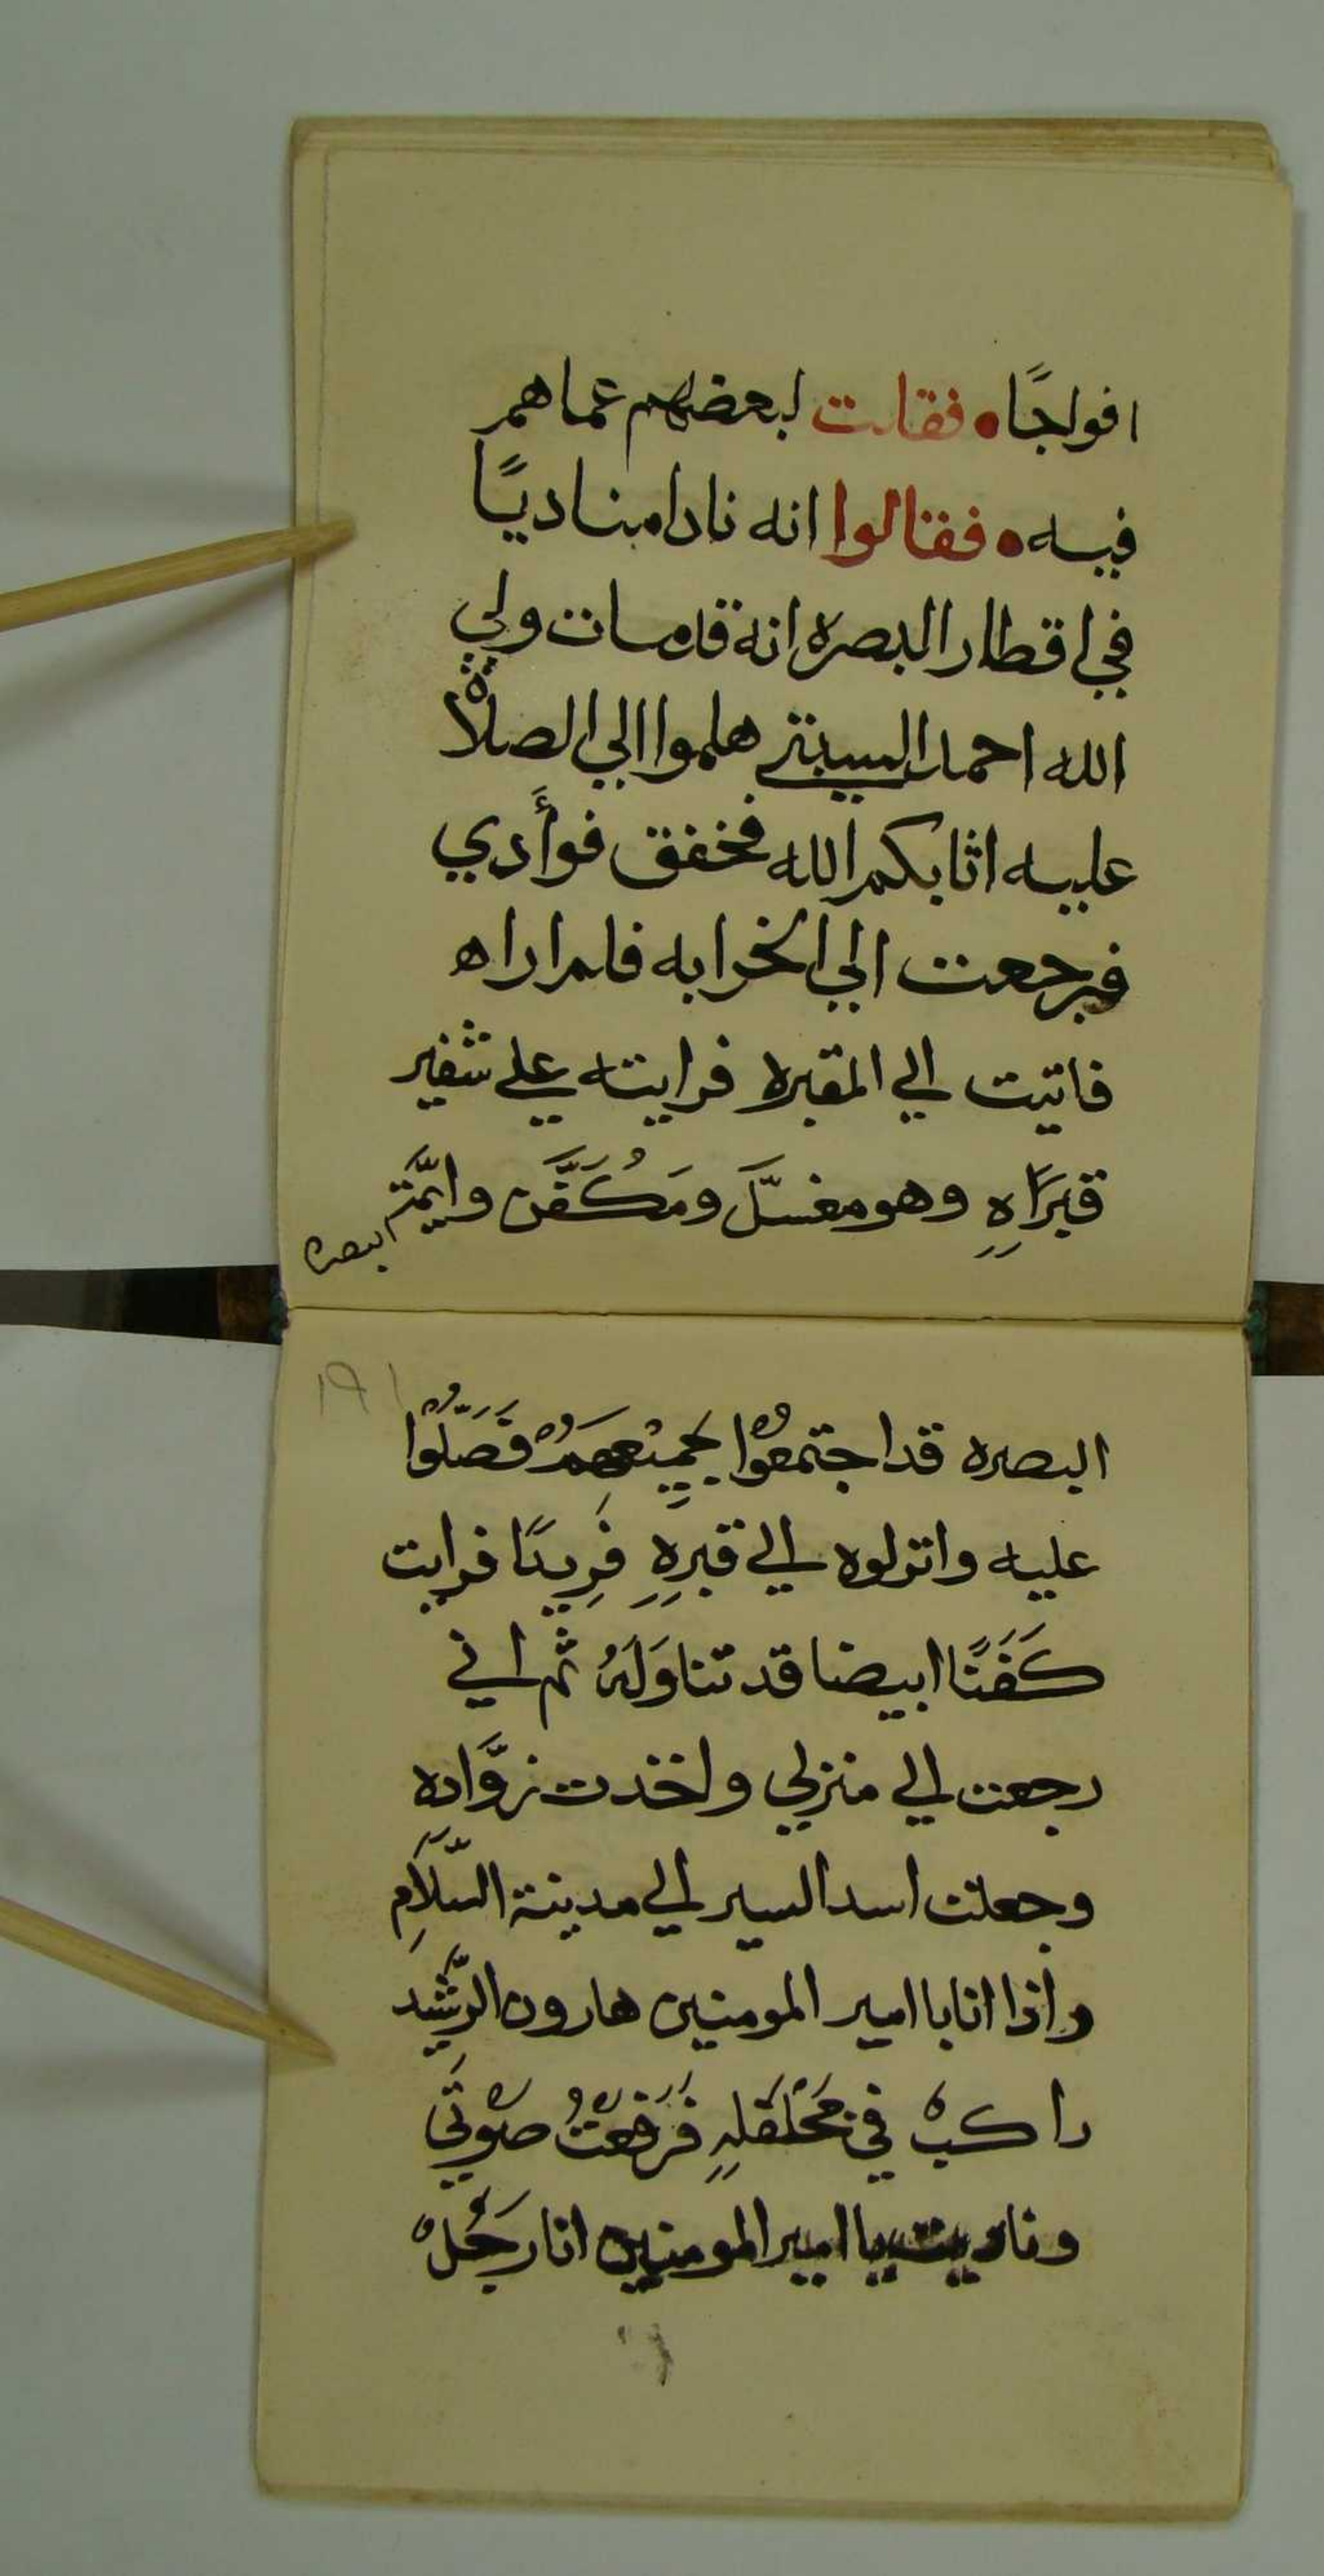 افواجًا • فقلت لبعضهم عما هم
فيه • فقالوا انه نادا مناديًا
في اقطار البصره انه قد مات ولي
الله احمد السبتي هلموا الي الصلاة
عليه اثابكم الله فخفق فوأدي
فرجعت الي الخرابه فلم اراه
فاتيت الي المقبره فرايته علي شفير
قبرًاهِ وهو مغسلَّ ومَكُفَّن وايمَّة
البصره
١٩١
البصره قد اجتمعوْا بجمِيْعهمْ فَصَلُّوْا
عليه وانزلوه الي قبرِهِ فَرِيدًا فرايت
كَفَنًا ابيضا قد تناوَلَهُ ثم اني
رجعت الي منزلي واخذت زوَّاده
وجعلت اسد السير الي مدينة السَّلَامِ
واذا انا باامير المومنين هارون الرَّشيد
راكبْ في فَرَفعْتُ صوْتَي
وناديت يا امير المومنين انا رَجُلْ